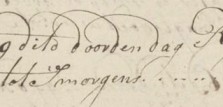 g ditd doorden dag
tot Smorgens.....